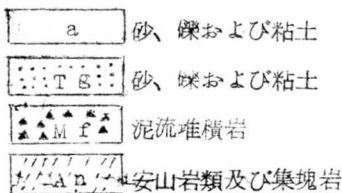 a 砂、礫および粘土
Tg 砂、礫および粘土
Mf 泥流堆積岩
An 安山岩類及び集塊岩